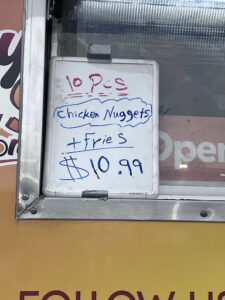 10 Pcs
Chicken Nuggets
+Fries
$10.99
Open
FOLLOW US